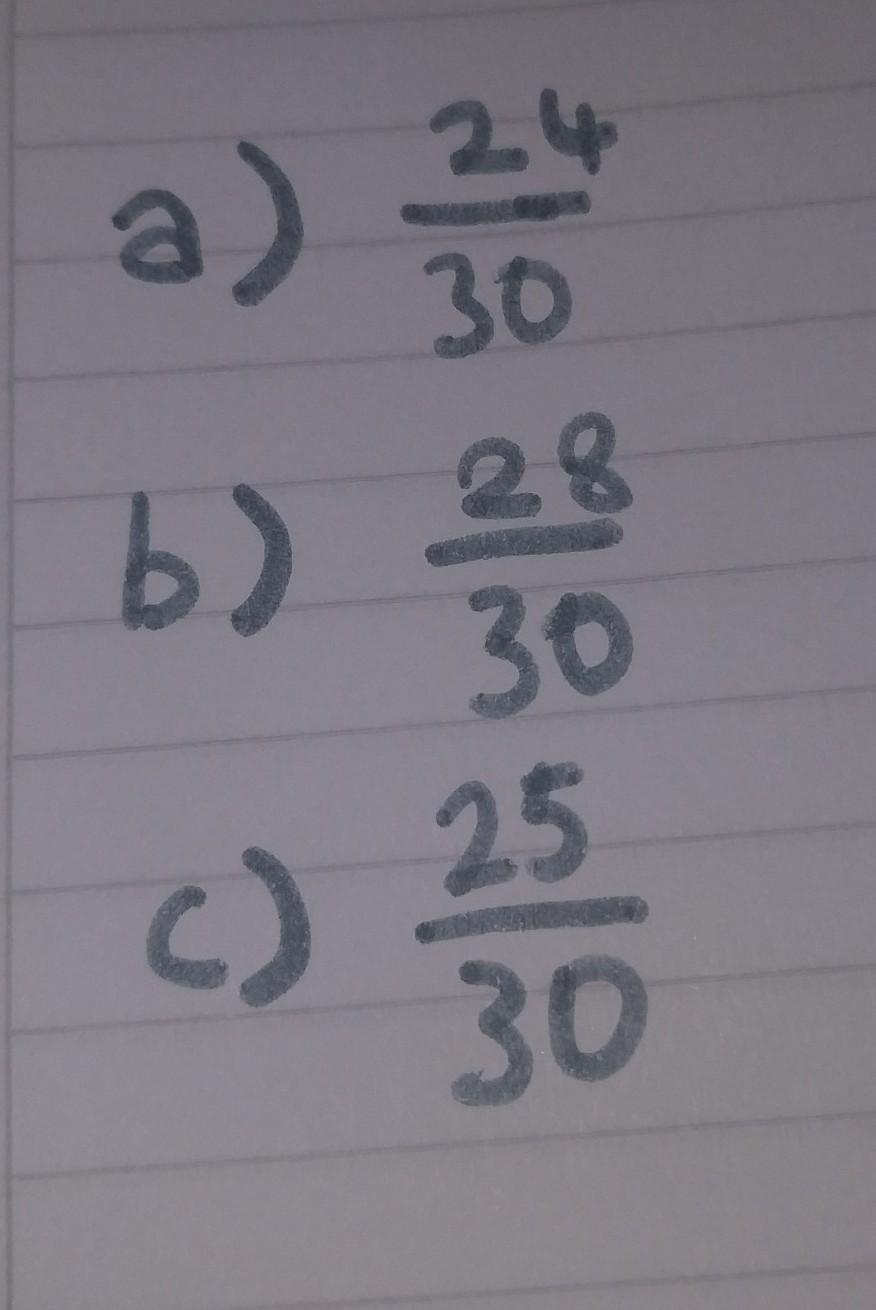 a) 24/30
b) 28/30
c) 25/30